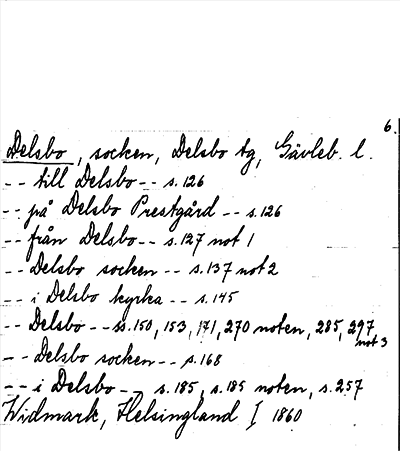 6.
Delsbo, socken, Delsbo tg, Gävleb. l.
-- till Delsbo -- s. 126
-- på Delsbo Prestgård -- s. 126
-- från Delsbo -- s. 127 not 1
-- Delsbo socken -- s. 137 not 2
-- i Delsbo kyrka -- s. 145
-- Delsbo -- ss. 150, 153, 171, 270 noten, 285, 297 not 3
-- Delsbo socken -- s. 168
-- i Delsbo -- s. 185, s. 185 noten, s. 257
Widmark, Helsingland I 1860